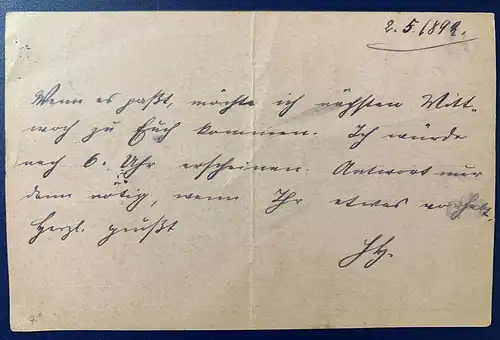 2.5.1892.
Wenn es paßt, möchte ich nächsten Mitt-
woch zu Euch kommen. Ich würde
nach 6. Uhr erscheinen. Antwort nur
dann nötig, wenn Ihr etwas vorhabt.
Herzl. grüßt